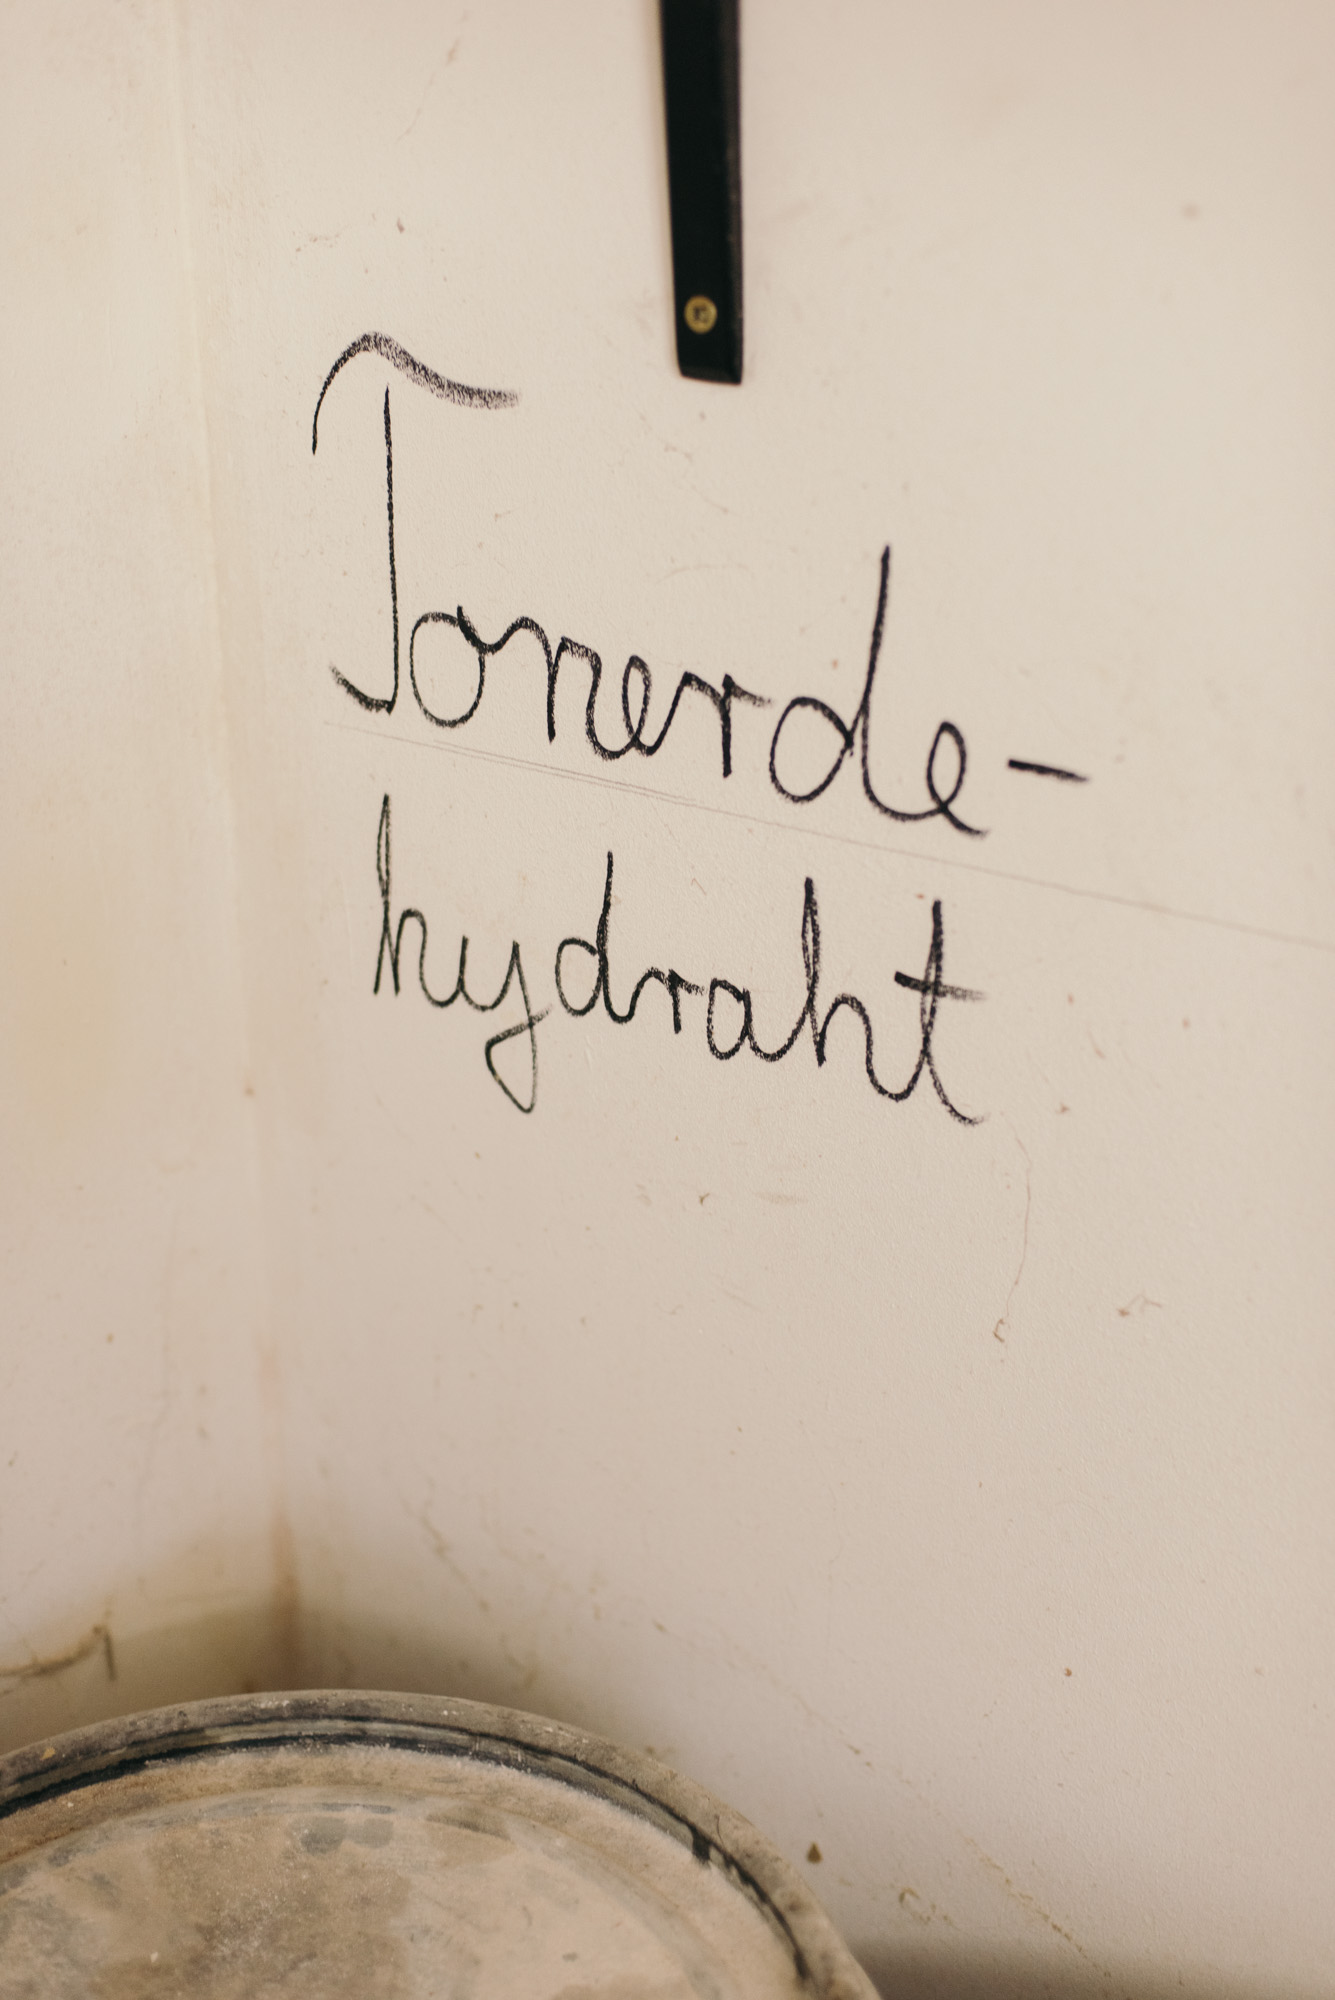 Tonerde-
hydraht